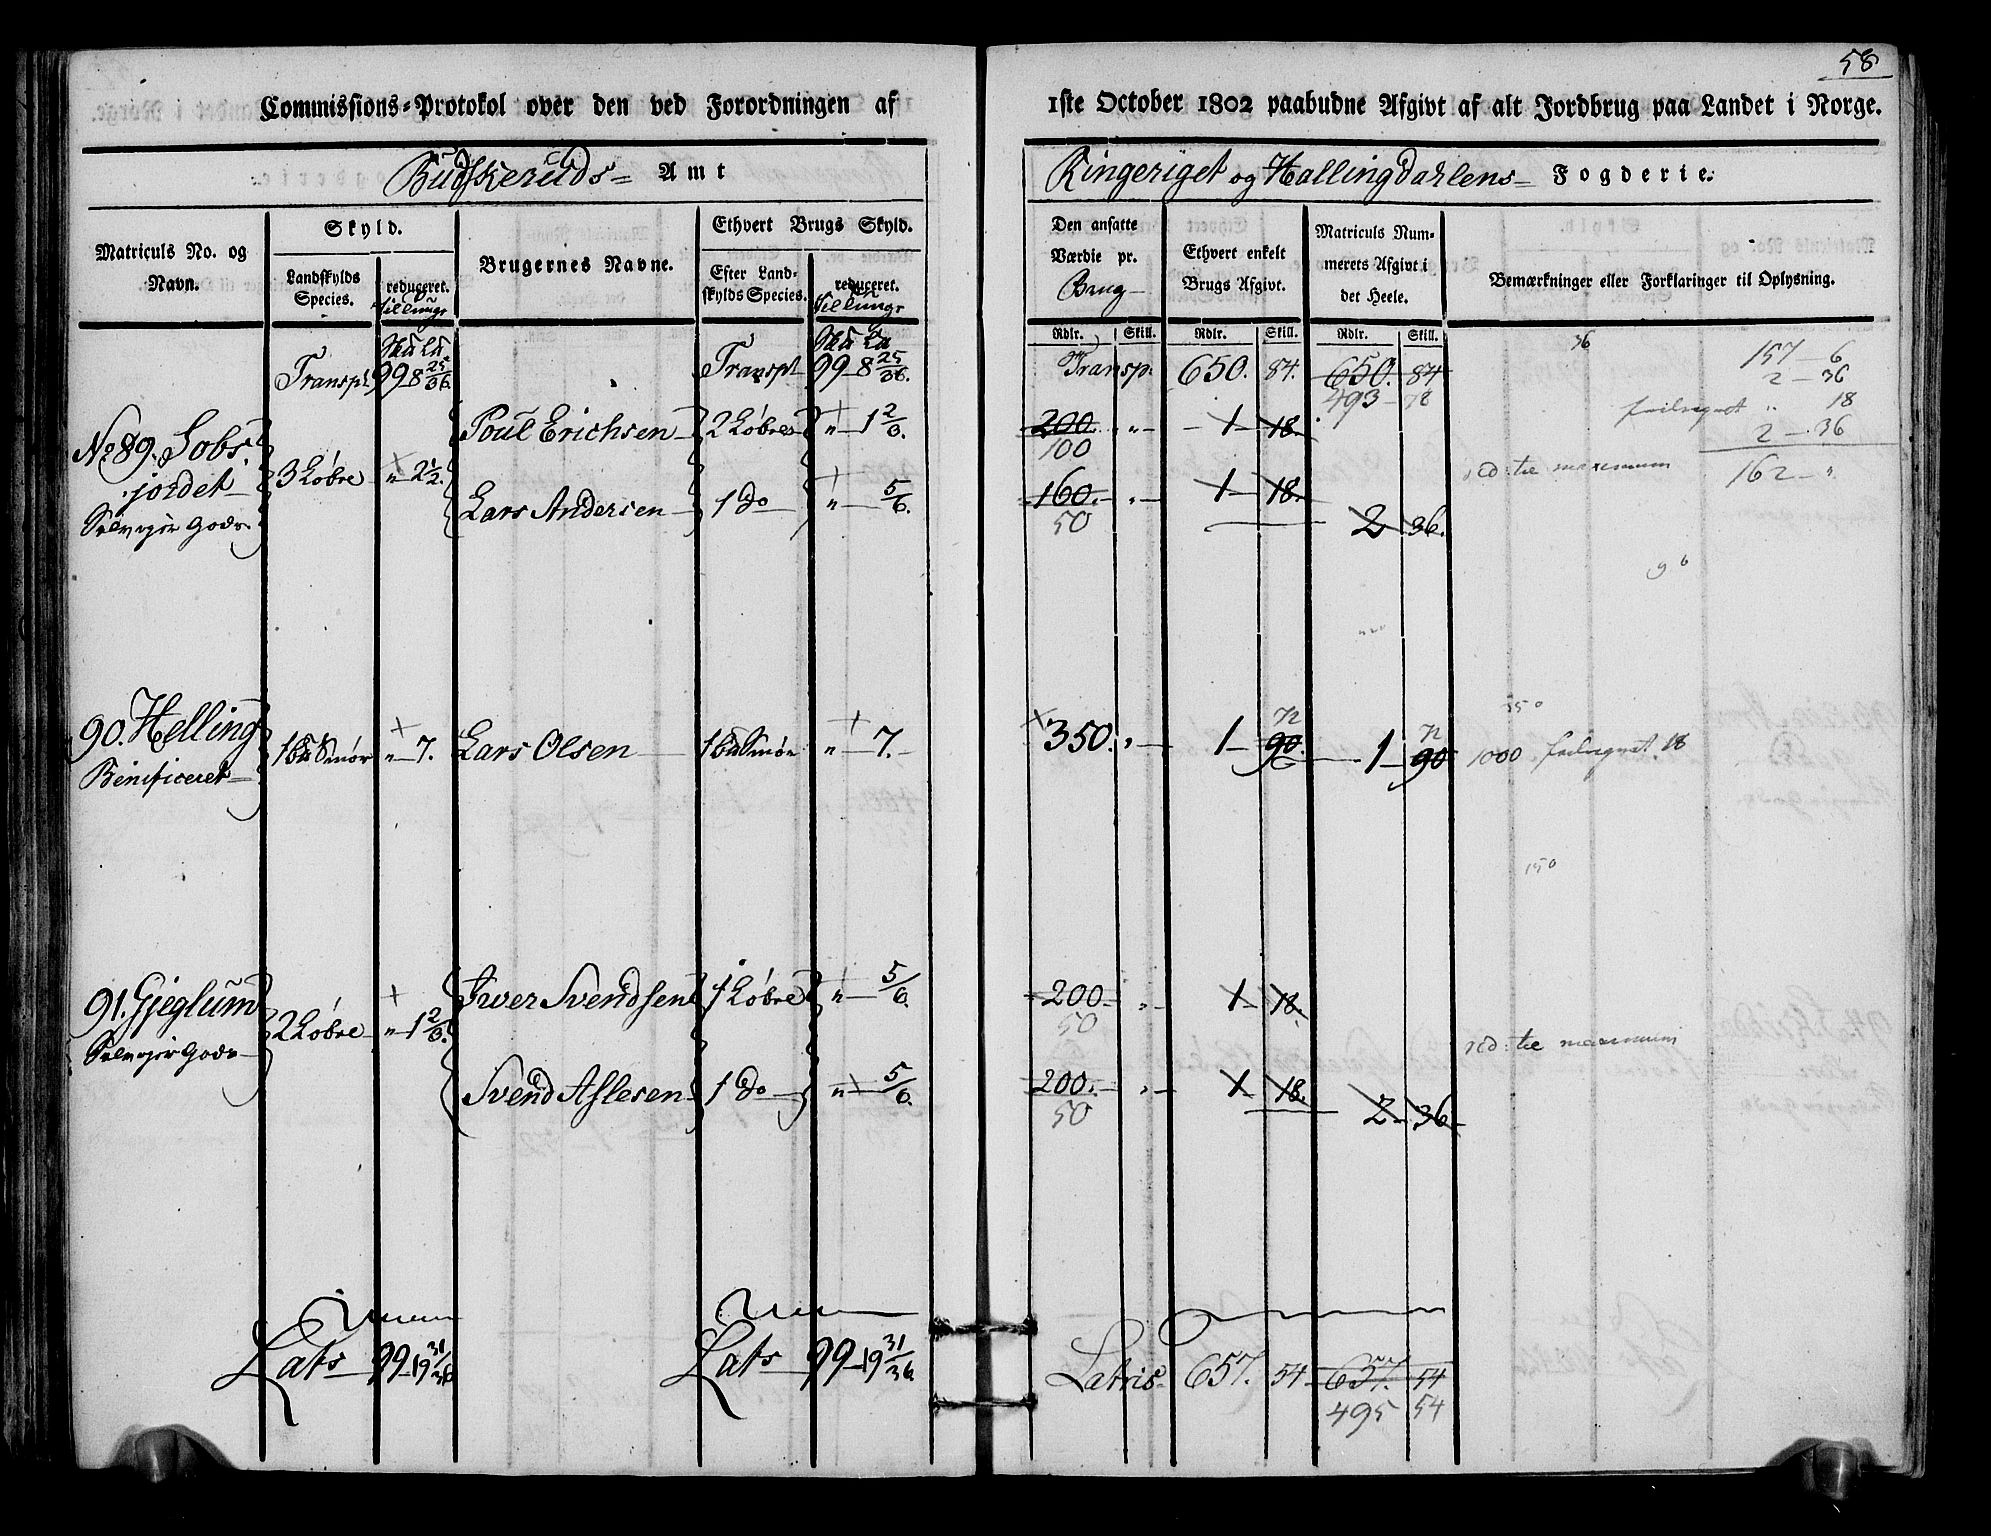 58
Commissions=Protokol over den ved Forordningen af 1ste October 1802 paabudne Afgivt af alt Jordbrug paa Landet i Norge.
Budskeruds= Amt
Ringeriget og Hallingdahlens= Fogderie.
Matriculs No. og Navn.
Skyld.
Landskylds Species.
reduceret.
Brugernes Navne.
Ethvert Brugs Skyld.
Efter Landskylds Species.
reduceret.
Den ansatte Værdie pr. Brug
Ethvert enkelt Brugs Afgivt.
Matriculs Nummerets Afgivt i det Heele.
Bemærkninger eller Forklaringer til Oplysning.
Rdlr. Skill. Rdlr. Skill. Rdlr. Skill.
Transpt 99 8 25/36. Transpt 99 8 25/36. Transp. 650. 84. 650. 84
493 78
36
157 6
2 36
feilregnet " 18
2 36
162 "
No 89. Sobs-
jordet
Selvejer Gods
3 Løbre " 2 1/2.
Poul Erichsen 2 Løbre " 1 2/3. 200. " 1 18.
100
Lars Andersen 1 do " 5/6. 160. " 1 18.
50
2 36.
red: til maximum
90. Helling
Beneficeret
1 Smør " 7. Lars Olsen 1 Smør " 7. 350. " 1 90. 1 90
72 72
1000 feilregnet 18
150
91. Gjeglum
Selvejer Gods
2 Løbre " 1 2/3.
Iver Svendsen 1 Løbre " 5/6. 200 " 1 18.
50
Svend Aslesen 1 do " 5/6. 200. " 1 18.
50
2 36
red: til maximum
Lats 99 19 31/36 Lats 99 19 31/36 Latris 657. 54 657. 54
495 54